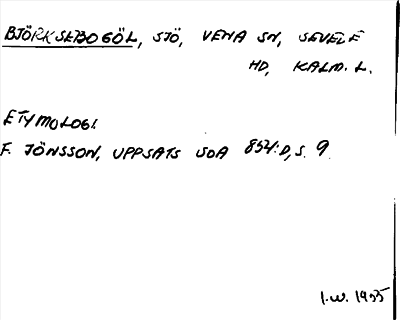 BJÖRKSEBOGÖL, SJÖ, VENA SN, SEVEDE
HD, KALM. L.
ETYMOLOGI.
F. JÖNSSON, UPPSATS SOA 854:D, S. 9.
I.W. 1935